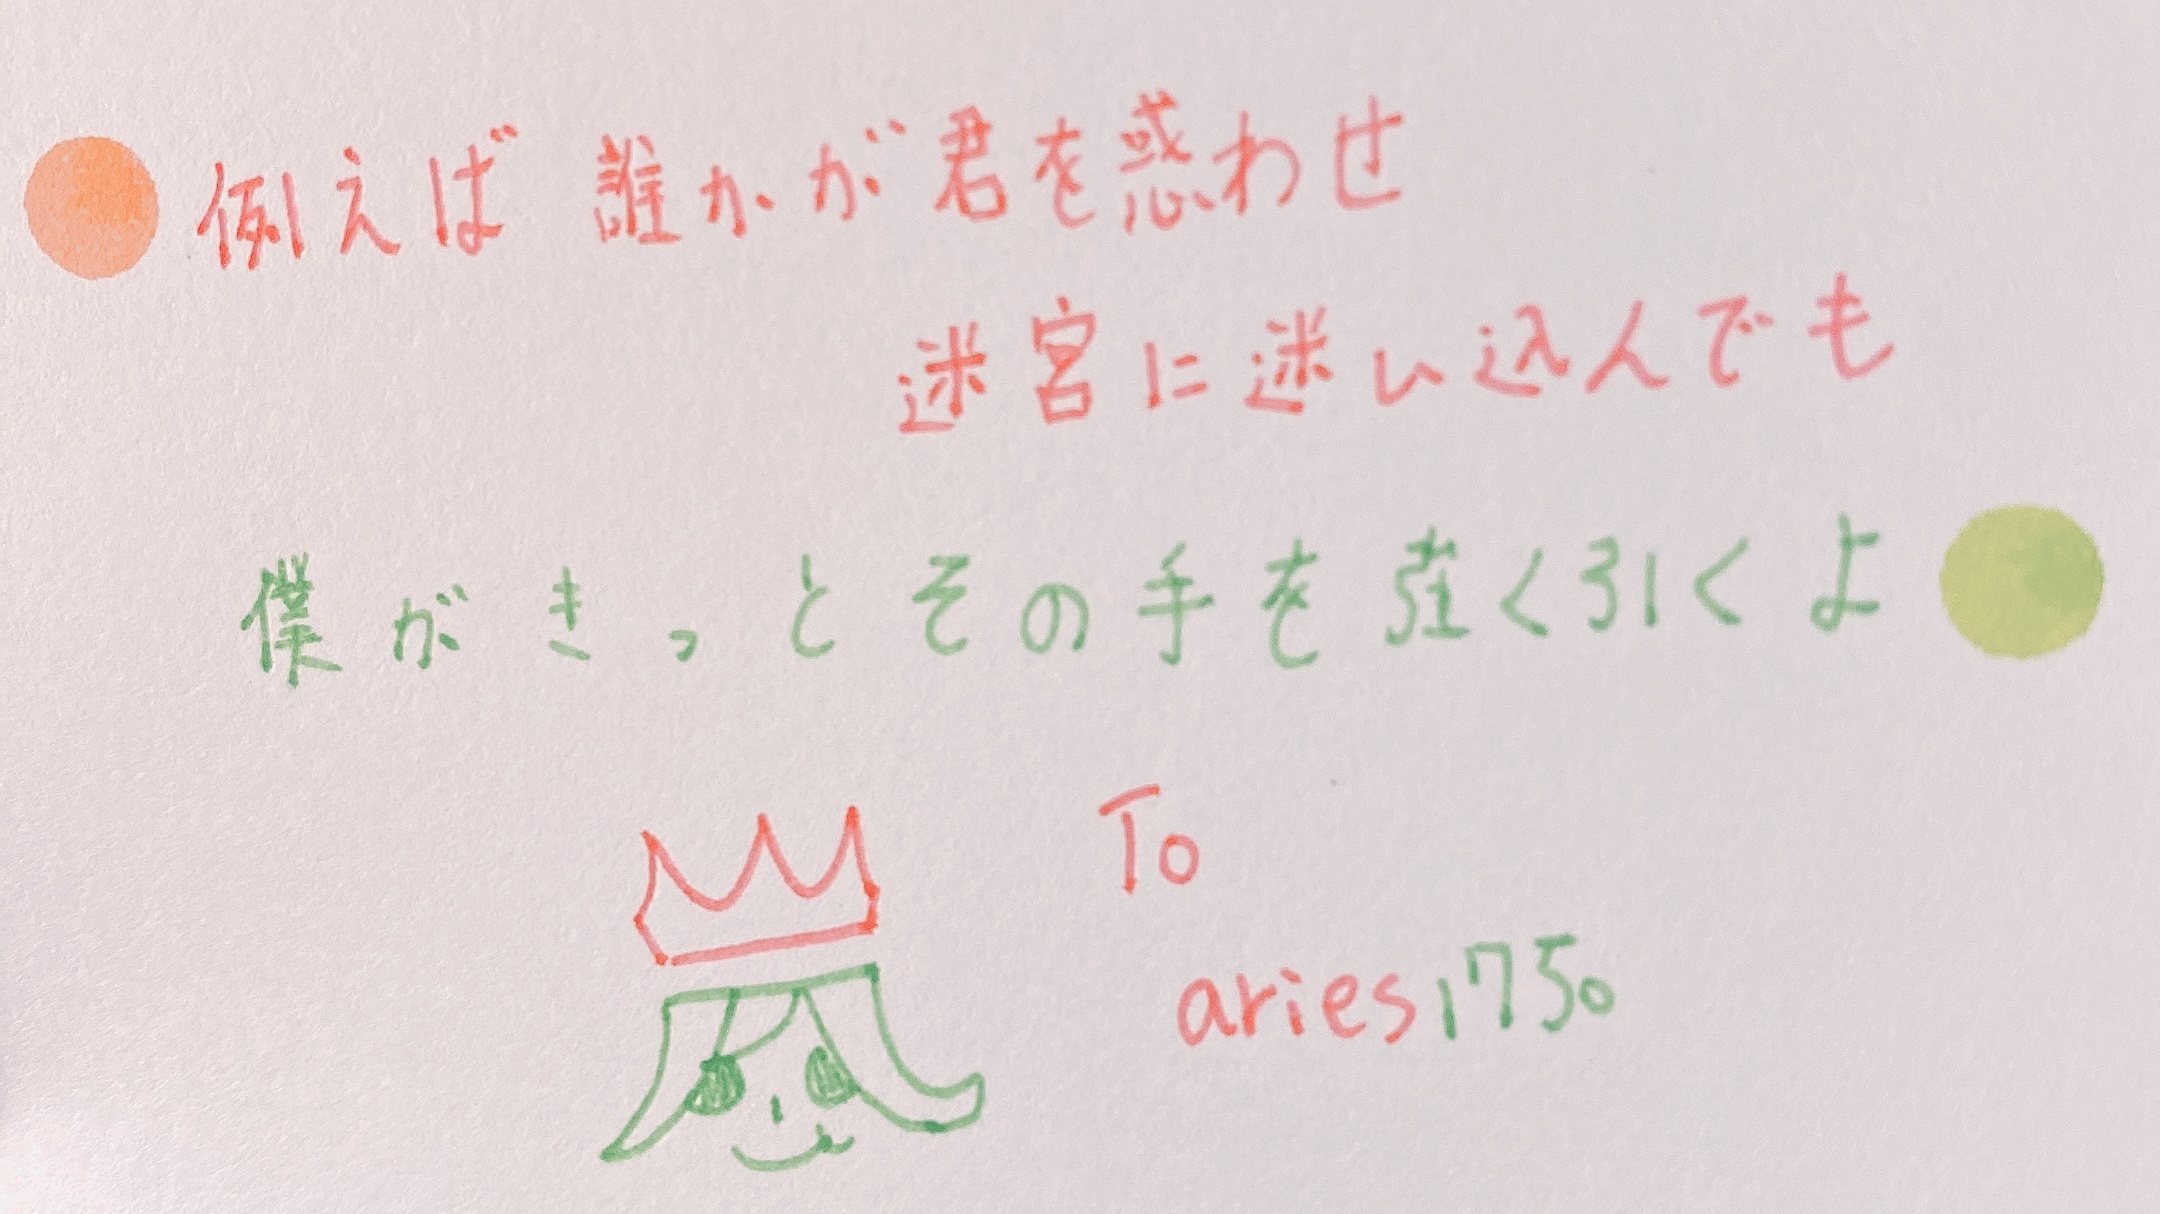 例えば 誰かが君を惑わせ
迷宮に迷い込んでも
僕がきっとその手を強く引くよ
To
aries1750